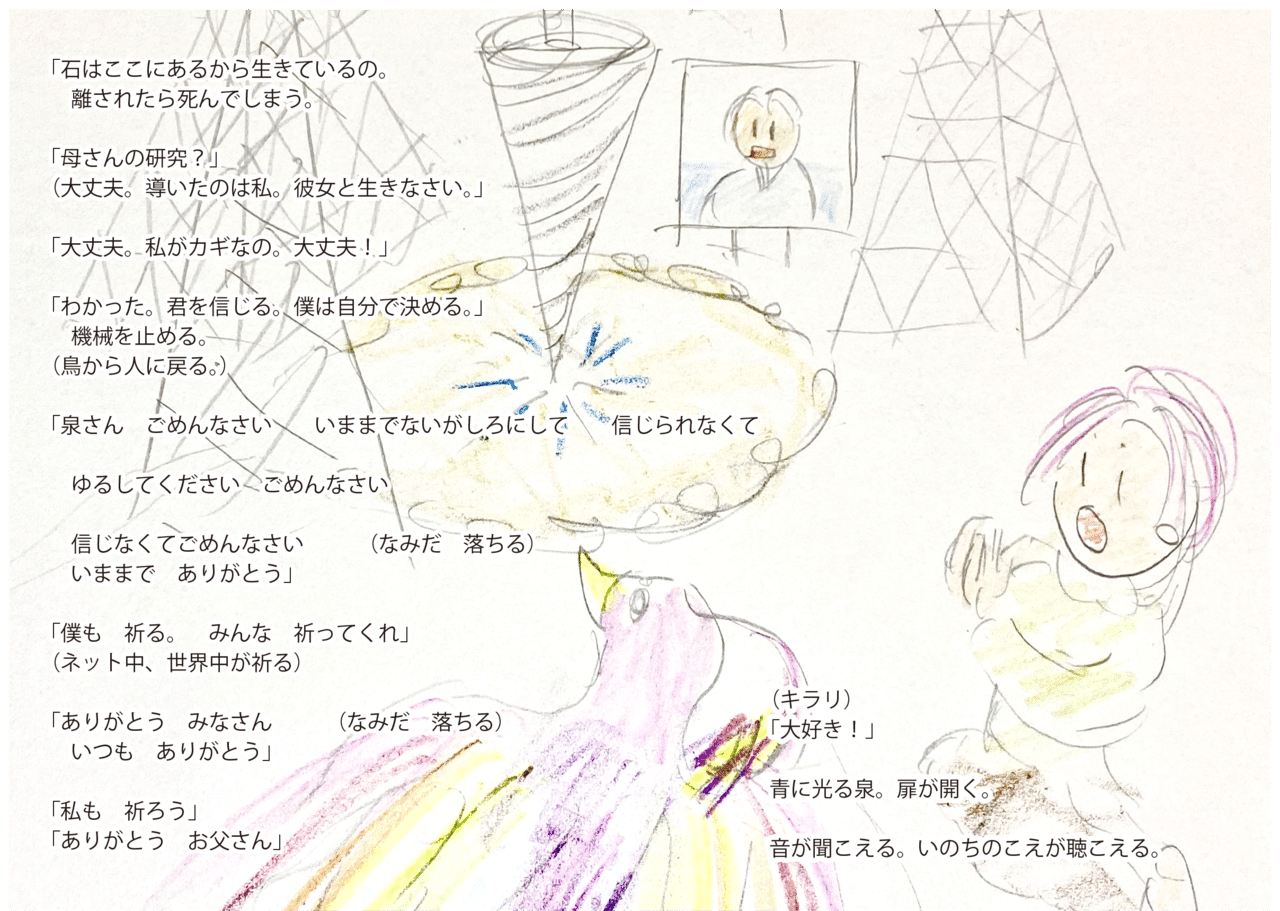 「石はここにあるから生きているの。
離されたら死んでしまう。
「母さんの研究？」
（大丈夫。導いたのは私。彼女と生きなさい。」
「大丈夫。私がカギなの。大丈夫！」
「わかった。君を信じる。僕は自分で決める。」
機械を止める。
（鳥から人に戻る。）
「泉さん　ごめんなさい　　いままでないがしろにして　　信じられなくて
ゆるしてください　ごめんなさい
信じなくてごめんなさい　　　（なみだ　落ちる）
いままで　ありがとう」
「僕も　祈る。　みんな　祈ってくれ」
（ネット中、世界中が祈る）
「ありがとう　みなさん　　　（なみだ　落ちる）
いつも　ありがとう」
「私も　祈ろう」
「ありがとう　お父さん」
（キラリ）
「大好き！」
青に光る泉。扉が開く。
音が聞こえる。いのちのこえが聴こえる。